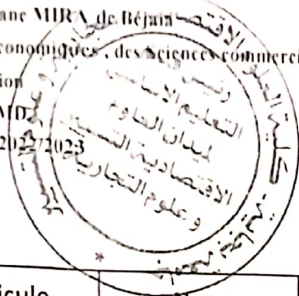 ane MIRA de Béjaia
conomiques, des Sciences commerci
ion
MD
2022/2023
رئيس
التعليم الأساسي
لميدان العلوم
الاقتصادية التسيير
و علوم التجارية
*
icule